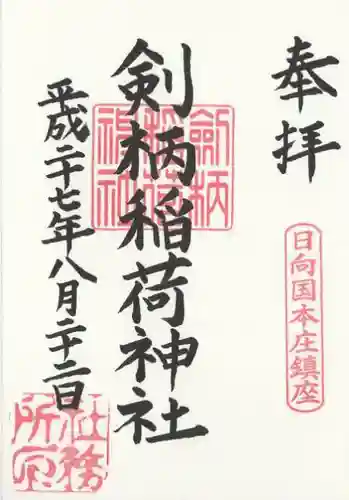 奉拝
日向国本庄鎮座
剣柄稲荷神社
劍柄稲荷神社
平成二十七年八月二十二日
社務所印